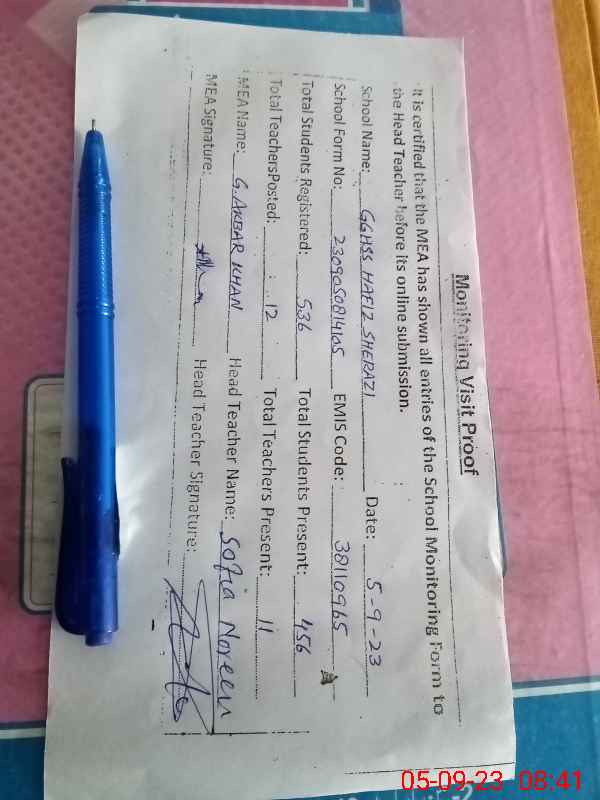 Monitoring Visit Proof
It is certified that the MEA has shown all entries of the School Monitoring Form to
the Head Teacher before its online submission.
School Name: GGHSS HAFIZ SHERAZI Date: 5-9-23
School Form No: 2309050814105 EMIS Code: 38110965
Total Students Registered: 536 Total Students Present: 456
Total TeachersPosted: 12 Total Teachers Present: 11
MEA Name: G. AKBAR KHAN Head Teacher Name: Sofia Noreen
MEA Signature: Head Teacher Signature:
05-09-23 08:41